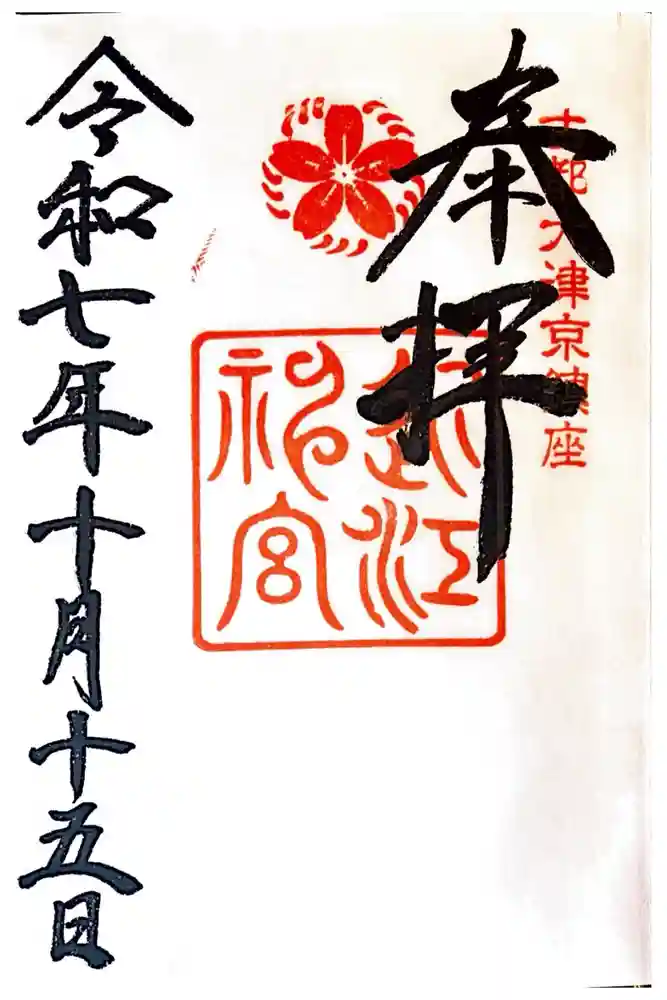 奉拝
古都大津京鎮座
近江
神宮
令和七年十月十五日